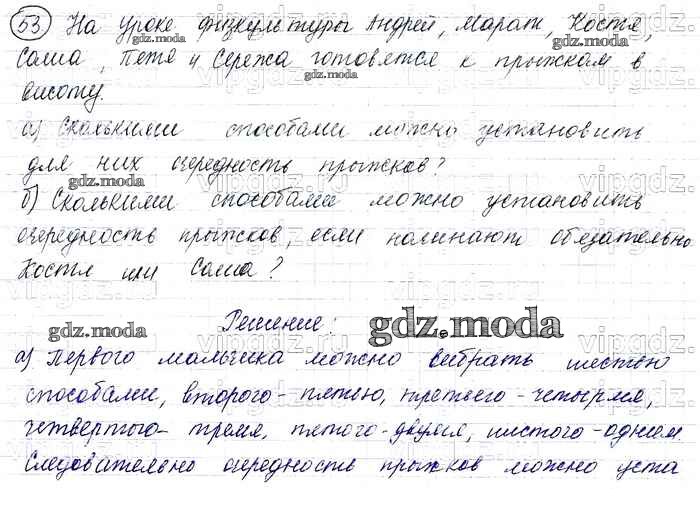 53 На уроке физкультуры Андрей, Марат, Костя,
Саша, Петя и Сережа готовятся к прыжкам в
высоту.
а) Сколькими способами можно установить
для них очередность прыжков?
gdz.moda
б) Сколькими способами можно установить
очередность прыжков, если начинают обязательно
Костя или Саша?
Решение:
gdz.moda
gdz.moda
а) Первого мальчика можно выбрать шестью
способами, второго - пятью, третьего - четырмя,
четвертого - тремя, пятого - двумя, шестого - одним
gdz.moda
Следовательно очередность прыжков можно уста